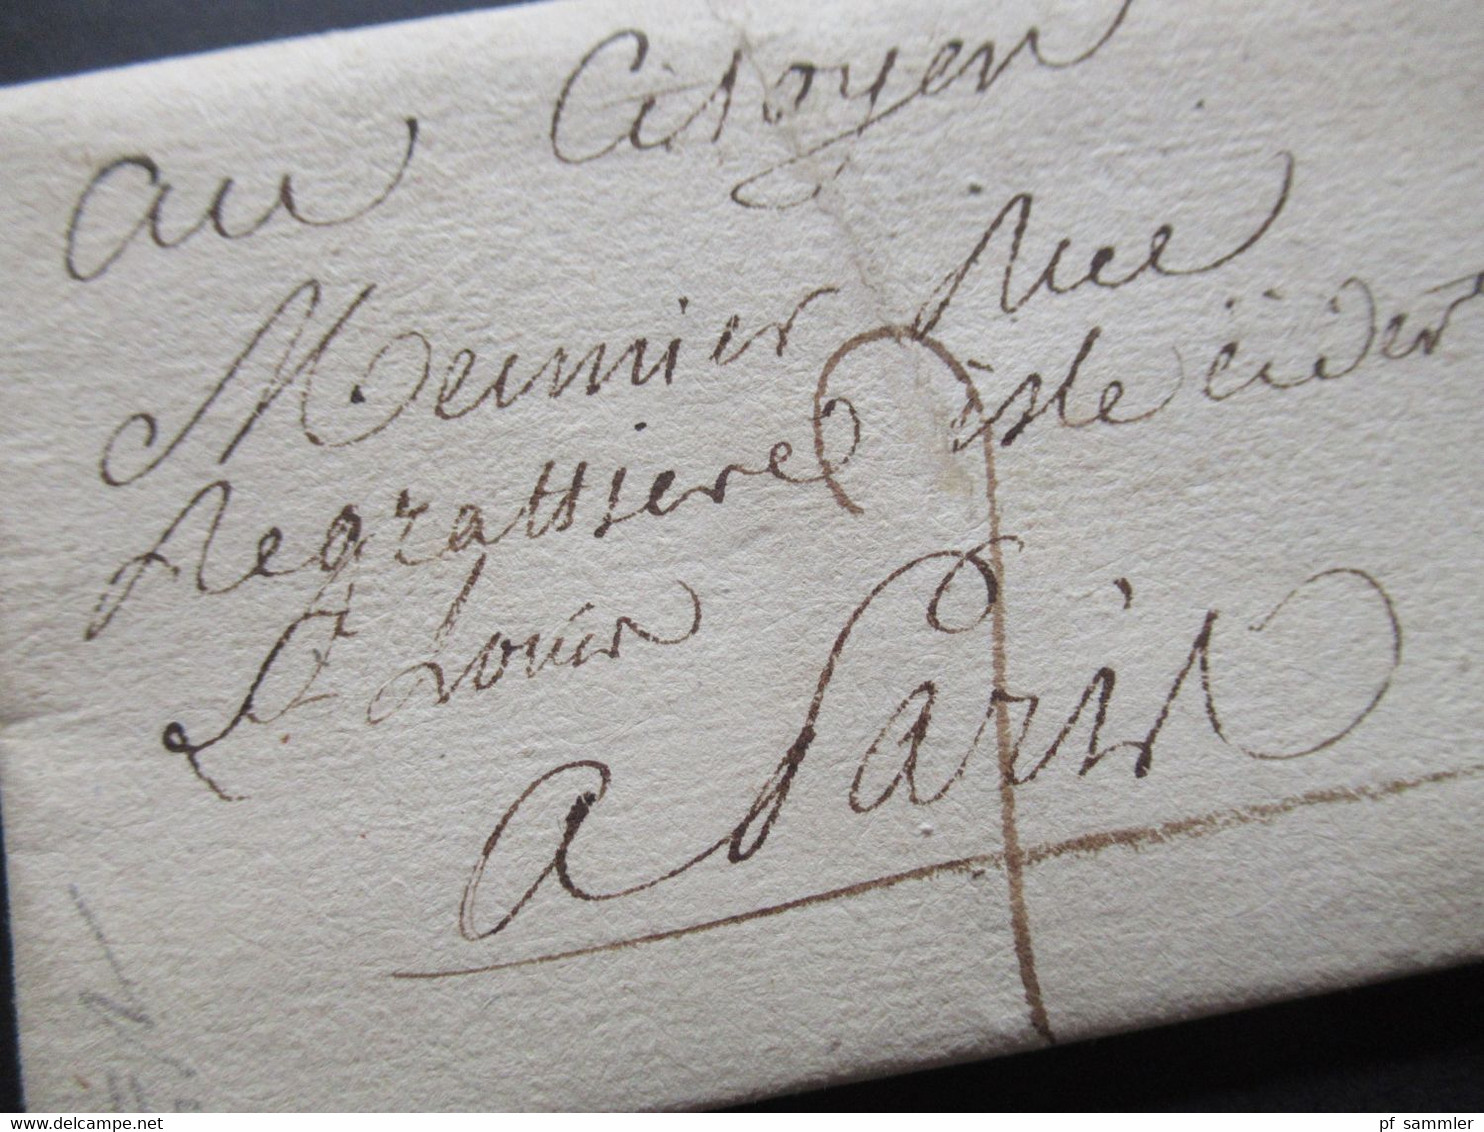 au Citoyen
Meunier Rue
Regrattiere isle cidevt
St Louis
a Paris
pf_sammler